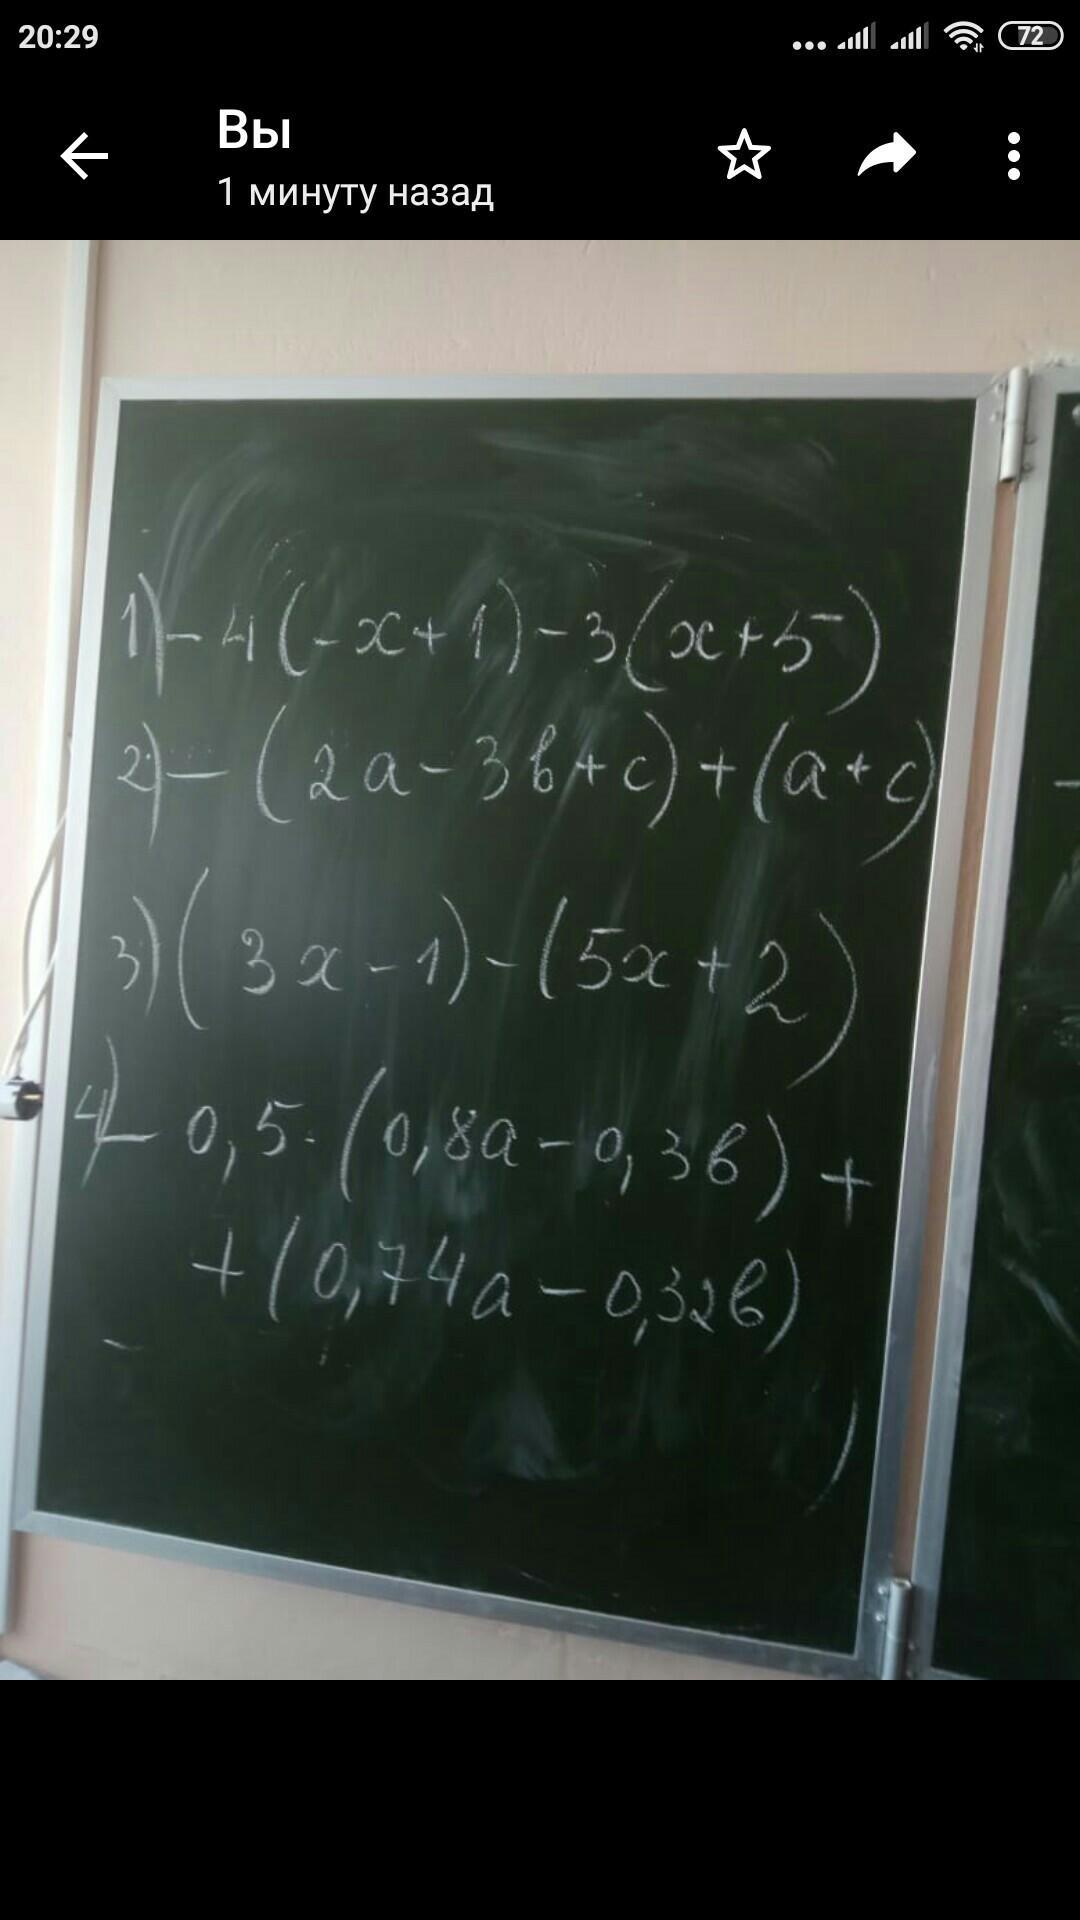 20:29
72
Вы
1 минуту назад
1) - 4(-x+1)-3(x+5)
2) - (2a-3b+c)+(a+c)
3) (3x-1)-(5x+2)
4) - 0,5·(0,8a-0,3b)+
+(0,74a-0,32b)